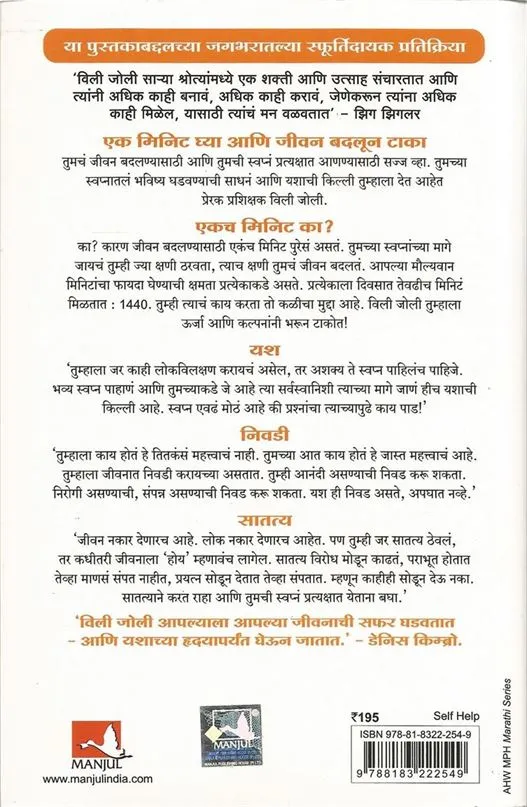 या पुस्तकाबद्दलच्या जगभरातल्या स्फूर्तिदायक प्रतिक्रिया
‘विली जोली साऱ्या श्रोत्यांमध्ये एक शक्ती आणि उत्साह संचारतात आणि
त्यांनी अधिक काही बनावं, अधिक काही करावं, जेणेकरून त्यांना अधिक
काही मिळेल, यासाठी त्यांचं मन वळवतात’ – झिग झिगलर
एक मिनिट घ्या आणि जीवन बदलून टाका
तुमचं जीवन बदलण्यासाठी आणि तुमची स्वप्नं प्रत्यक्षात आणण्यासाठी सज्ज व्हा. तुमच्या
स्वप्नातलं भविष्य घडवण्याची साधनं आणि यशाची किल्ली तुम्हाला देत आहेत
प्रेरक प्रशिक्षक विली जोली.
एकच मिनिट का?
का? कारण जीवन बदलण्यासाठी एकंच मिनिट पुरेसं असतं. तुमच्या स्वप्नांच्या मागे
जायचं तुम्ही ज्या क्षणी ठरवता, त्याच क्षणी तुमचं जीवन बदलतं. आपल्या मौल्यवान
मिनिटांचा फायदा घेण्याची क्षमता प्रत्येकाकडे असते. प्रत्येकाला दिवसात तेवढीच मिनिटं
मिळतात : 1440. तुम्ही त्याचं काय करता तो कळीचा मुद्दा आहे. विली जोली तुम्हाला
ऊर्जा आणि कल्पनांनी भरून टाकोत!
यश
‘तुम्हाला जर काही लोकविलक्षण करायचं असेल, तर अशक्य ते स्वप्न पाहिलंच पाहिजे.
भव्य स्वप्न पाहाणं आणि तुमच्याकडे जे आहे त्या सर्वस्वानिशी त्याच्या मागे जाणं हीच यशाची
किल्ली आहे. स्वप्न एवढं मोठं आहे की प्रश्नांचा त्याच्यापुढे काय पाड!’
निवडी
‘तुम्हाला काय होतं हे तितकंसं महत्त्वाचं नाही. तुमच्या आत काय होतं हे जास्त महत्त्वाचं आहे.
तुम्हाला जीवनात निवडी करायच्या असतात. तुम्ही आनंदी असण्याची निवड करू शकता.
निरोगी असण्याची, संपन्न असण्याची निवड करू शकता. यश ही निवड असते, अपघात नव्हे.’
सातत्य
‘जीवन नकार देणारच आहे. लोक नकार देणारच आहेत. पण तुम्ही जर सातत्य ठेवलं,
तर कधीतरी जीवनाला ‘होय’ म्हणावंच लागेल. सातत्य विरोध मोडून काढतं, पराभूत होतात
तेव्हा माणसं संपत नाहीत, प्रयत्न सोडून देतात तेव्हा संपतात. म्हणून काहीही सोडून देऊ नका.
सातत्याने करत राहा आणि तुमची स्वप्नं प्रत्यक्षात येताना बघा.’
‘विली जोली आपल्याला आपल्या जीवनाची सफर घडवतात
– आणि यशाच्या हृदयापर्यंत घेऊन जातात.’ – डेनिस किम्ब्रो.
MANJUL
www.manjulindia.com
MANJUL
₹195
Self Help
ISBN 978-81-8322-254-9
9 788183 222549
AHW MPH Marathi Series